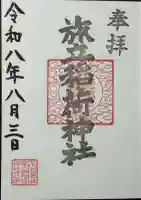 奉拝
旅立稲荷神社
令和八年八月三日